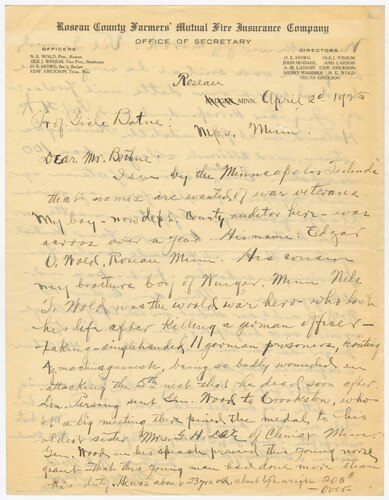 Roseau County Farmers' Mutual Fire Insurance Company
OFFICE OF SECRETARY
OFFICERS
N. E. WOLD, Pres., Roseau
OLE J. WINJUM, Vice Pres.,
O. E. HOWG, Sec'y,
EDW. ERICKSON, Treas.,
DIRECTORS
O. E. HOWG OLE J. WINJUM
JOHN AND LARSON
A. M. LANGBY EDW. ERICKSON
HENRY N. E. WOLD
OSCAR ERICKSON
Roseau
MINN. April 2d 1925
Prof Gisle Botne:
Mpls, Minn.
Dear Mr. Botne:
I see by the Minneapolis Tidende
that names are wanted of war veterans
My boy - now dep't. County auditor here - was
across over a year. His name: Edgar
O. Wold, Roseau Minn. His cousin
my brothers boy of Winger, Minn Nels
T. Wold was the world war hero who lost
his life after killing a german officer -
taking - singlehanded 11 german prisoners, routing
4 mascinegunnests, being so badly wounded in
attacking the 5th nest that he died soon after
Gen. Persing sent Gen. Wood to Crookston, who
at a big meeting there pined the medal to his
oldest sister, Mrs. G. H. Lee of Climax Minn.
Gen. Wood in his speach praised this young norse
giant. That this young man had done more than
his duty. He was about 23 yrs old, about 6 ft weight 200 #
over